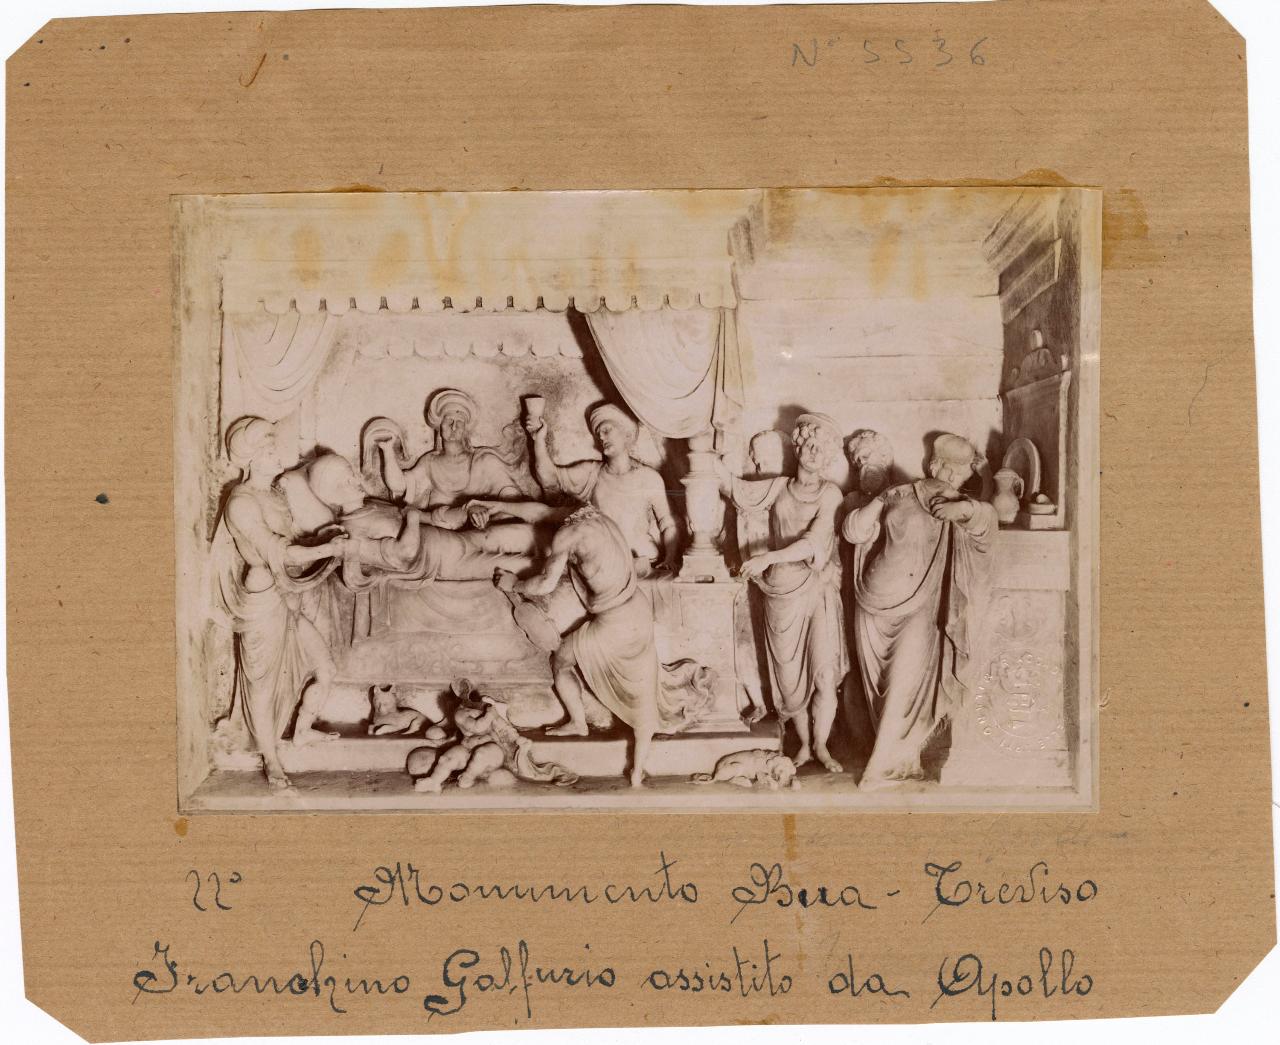 N° 5536
N° Monumento Bua - Treviso
Franchino Gaffurio assistito da Apollo